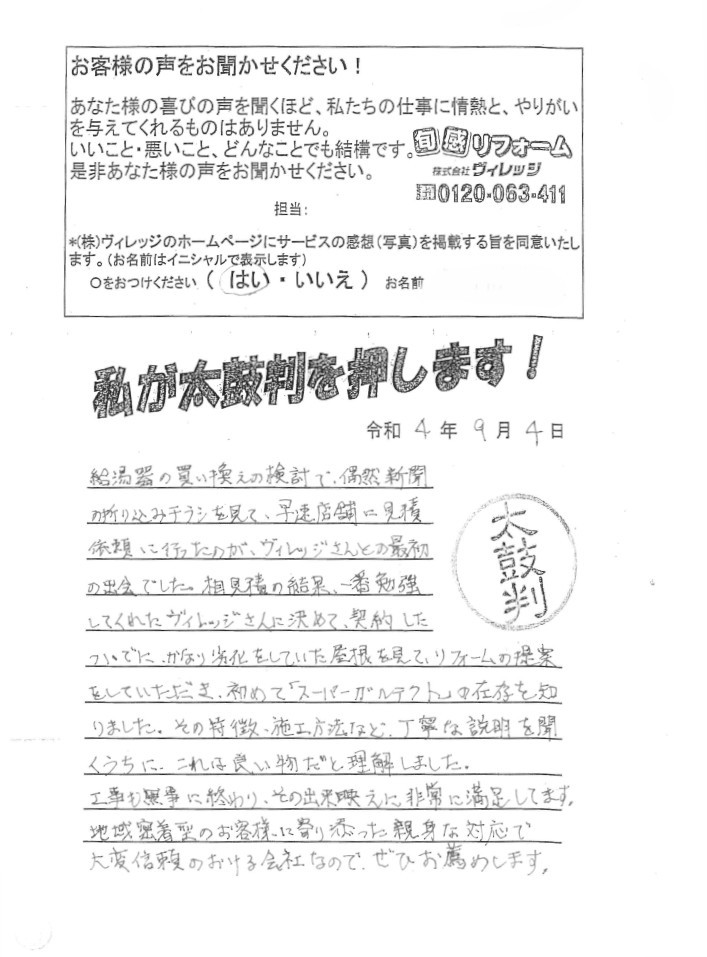 お客様の声をお聞かせください！
あなた様の喜びの声を聞くほど、私たちの仕事に情熱と、やりがい
を与えてくれるものはありません。
いいこと・悪いこと、どんなことでも結構です。
是非あなた様の声をお聞かせください。
旬感リフォーム
株式会社ヴィレッジ
0120-063-411
担当：
*(株)ヴィレッジのホームページにサービスの感想(写真)を掲載する旨を同意いたし
ます。(お名前はイニシャルで表示します)
○をおつけください（ はい ・ いいえ ） お名前
私が太鼓判を押します！
令和 4 年 9 月 4 日
給湯器の買い換えの検討で、偶然新聞
の折り込みチラシを見て、早速店舗に見積
依頼に行ったのが、ヴィレッジさんとの最初
の出会でした。相見積の結果、一番勉強
してくれたヴィレッジさんに決めて、契約した
ついでに、かなり劣化をしていた屋根を見て、リフォームの提案
をしていただき、初めて「スーパーガルテクト」の在存を知
りました。その特徴、施工方法など、丁寧な説明を聞
くうちに、これは良い物だと理解しました。
工事も無事に終わり、その出来映えに非常に満足してます。
地域密着型のお客様に寄り添った親身な対応で
大変信頼のおける会社なので、ぜひお薦めします。
太鼓判